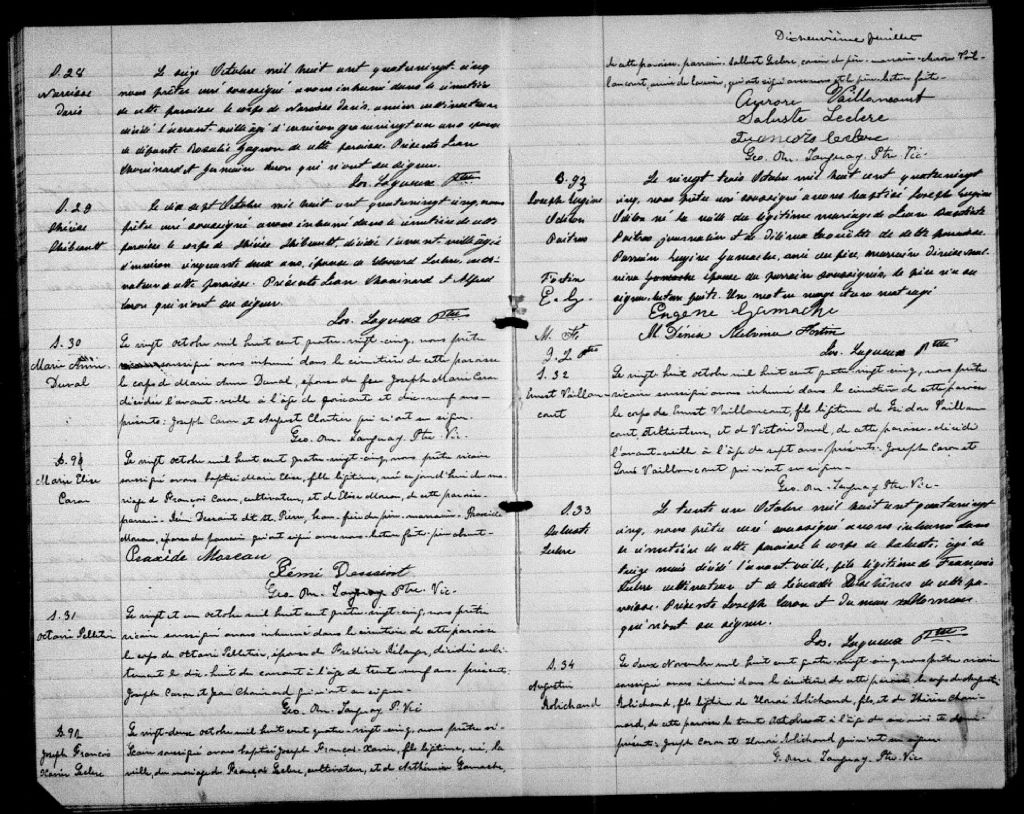 S. 28
Narcisse
Paris
Le seize Octobre mil huit cent quatrevingt cinq
nous prêtre curé soussigné avons inhumé dans le cimetière
de cette paroisse le corps de Narcisse Paris, ancien cultivateur
décédé l'avant veille âgé d'environ quatrevingt un ans époux
de défunte Rosalie Gagnon de cette paroisse. Présents Jean
Chouinard et Germain Caron qui n'ont su signer.
Jos. Lagueux Ptre
S. 29
Thibeault
Le dix sept Octobre mil huit cent quatrevingt cinq, nous
prêtre curé soussigné avons inhumé dans le cimetière de cette
paroisse le corps de Thibeault décédée l'avant veille âgée
d'environ cinquante deux ans, épouse de Edouard Leclerc, culti-
vateur de cette paroisse. Présents Jean Chouinard et Alfred
Caron qui n'ont su signer.
Jos. Lagueux Ptre
S. 30
Marie Anne
Duval
Le vingt octobre mil huit cent quatre-vingt-cinq, nous prêtre
vicaire soussigné avons inhumé dans le cimetière de cette paroisse
le corps de Marie Anne Duval, épouse de feu Joseph Marie Caron
décédée l'avant-veille à l'âge de soixante et dix-neuf ans-
présents: Joseph Caron et August Cloutier qui n'ont su signer-
Geo. On. Tanguay Ptr. Vic-
B. 91
Marie Elise
Caron
Le vingt octobre mil huit cent quatre-vingt-cinq, nous prêtre vicaire
soussigné avons baptisé Marie Elise, fille légitime, née aujourd'hui du ma-
riage de François Caron, cultivateur, et de Elise Moreau, de cette paroisse-
parrain- Rémi Dessaint dit St. Pierre, marraine- Praxède
Moreau, épouse du parrain qui ont signé avec nous- lecture faite-
Praxède Moreau
Rémi Dessaint
Geo. On. Tanguay Ptre Vic-
S. 31
Octavie Pelletier
Le vingt et un octobre mil huit cent quatre-vingt-cinq, nous prêtre
vicaire soussigné avons inhumé dans le cimetière de cette paroisse
le corps de Octavie Pelletier, épouse de Frédéric Bélanger, décédée subi-
tement le dix-huit du courant à l'âge de trente-neuf ans- présents:
Joseph Caron et Jean Chouinard qui n'ont su signer-
Geo. On. Tanguay P. Vic
B. 92
Joseph François
Xavier Leclerc
Le vingt-deux octobre mil huit cent quatre-vingt-cinq, nous prêtre vi-
caire soussigné avons baptisé Joseph François-Xavier, fils légitime, né, la
veille, du mariage de François Leclerc, cultivateur, et de Arthémise Gamache,
Dixneuvième feuillet
de cette paroisse, parrain- Salluste Leclerc, cousin du père- marraine- Aurore Vail-
lancourt, amie de l'enfant, qui ont signé avec nous et le père lecture faite-
Aurore Vaillancourt
Saluste Leclerc
François Leclerc
Geo. On. Tanguay Ptr. Vic-
B. 93
Joseph Eugène
Odilon
Poitras
Le vingt trois Octobre mil huit cent quatrevingt
cinq, nous prêtre curé soussigné avons baptisé Joseph Eugène
Odilon né la veille du légitime mariage de Jean Baptiste
Poitras journalier et de de cette paroisse.
Parrain Eugène Gamache, ami du père, marraine
Gamache épouse du parrain soussignés, le père n'a su
signer lecture faite. Un mot en marge et un mot rayé
Fortin
E. G.
M. F.
J. L. Ptre
Eugène Gamache
M. Fortin
Jos. Lagueux Ptre
S. 32
Ernest Vaillan-
court
Le vingt-huit octobre mil huit cent quatre-vingt-cinq, nous prêtre
vicaire soussigné avons inhumé dans le cimetière de cette paroisse
le corps de Ernest Vaillancourt, fils légitime de Vaillan-
court, cultivateur, et de Victoria Duval, de cette paroisse- décédé
l'avant-veille à l'âge de sept ans- présents: Joseph Caron et
Louis Vaillancourt qui n'ont su signer-
Geo. On. Tanguay Ptr. Vic-
S. 33
Saluste
Leclerc
Le trente un Octobre mil huit cent quatrevingt
cinq, nous prêtre curé soussigné avons inhumé dans
le cimetière de cette paroisse le corps de Saluste, âgé de
seize mois décédé l'avant veille, fils légitime de François
Leclerc cultivateur et de de cette pa-
roisse. Présents Joseph Caron et
qui n'ont su signer.
Jos. Lagueux Ptre
S. 34
Augustin
Robichaud
Le deux Novembre mil huit cent quatre-vingt-cinq, nous prêtre vicaire
soussigné avons inhumé dans le cimetière de cette paroisse le corps de Augustin
Robichaud, fils légitime de Honoré Robichaud, et de Choui-
nard, de cette paroisse le trente Octobre à l'âge de et demi-
présents: Joseph Caron et Honoré Robichaud qui n'ont su signer
G. One Tanguay Ptre Vic-